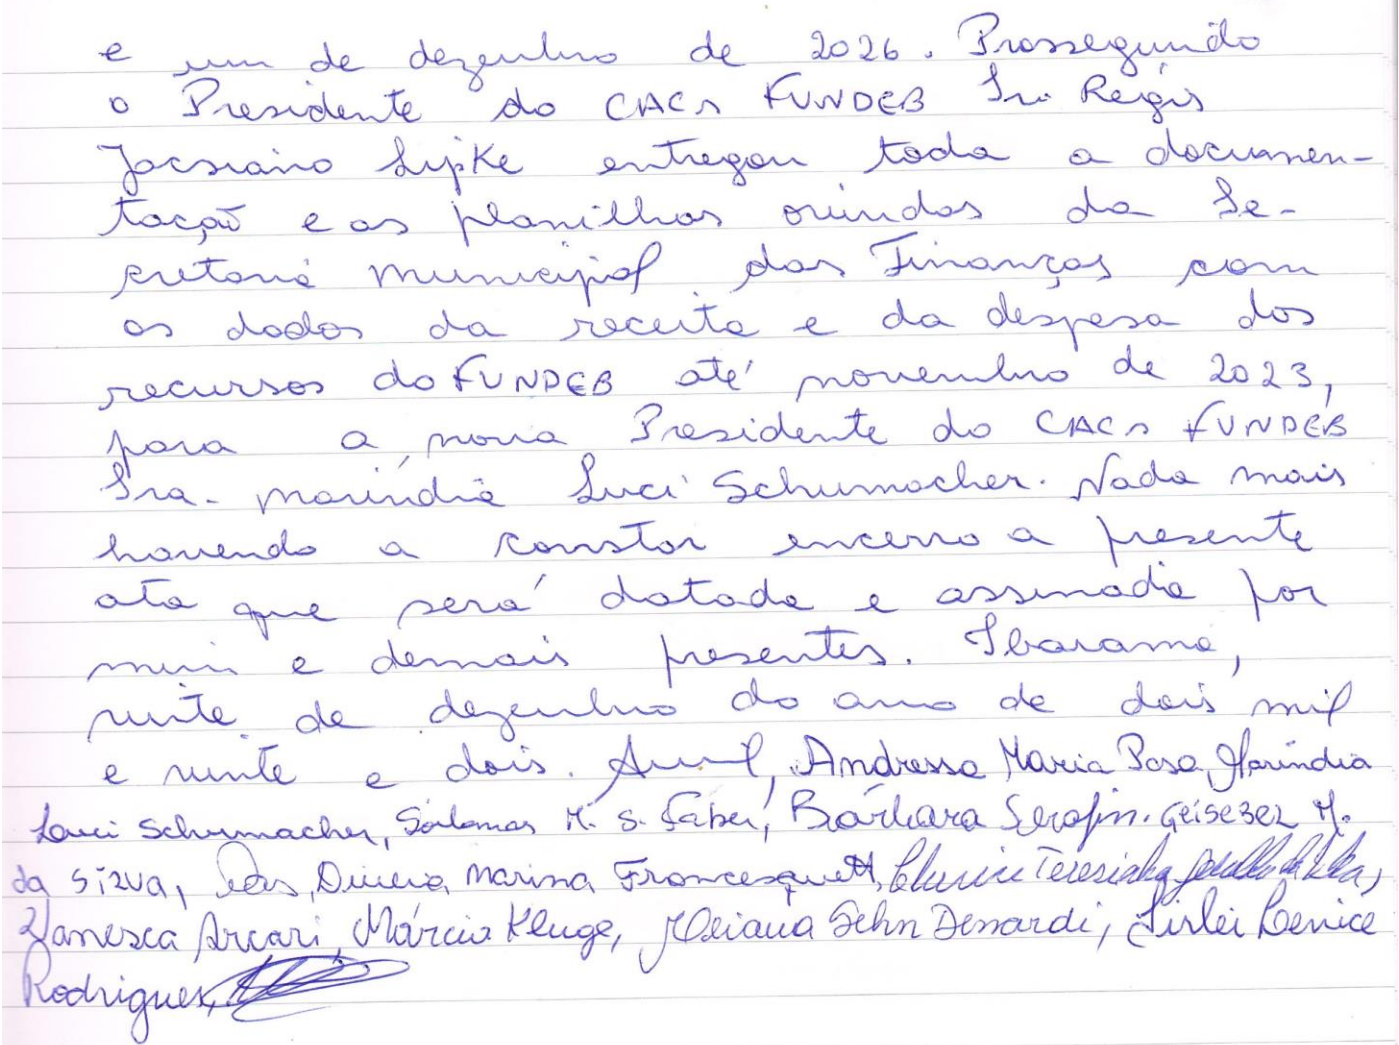 e um de dezembro de 2026. Prosseguindo
o Presidente do CACs FUNDEB Sr. Régis
Jocsiano Lipke entregou toda a documen-
tação e as planilhas oriundas da Se-
cretaria Municipal das Finanças com
os dados da receita e da despesa dos
recursos do FUNDEB até novembro de 2023,
para a nova Presidente do CACs FUNDEB
Sra. Maríndia Luci Schumacher. Nada mais
havendo a constar encerro a presente
ata que será datada e assinada por
mim e demais presentes. Ibarama,
vinte de dezembro do ano de dois mil
e vinte e dois. Andressa Maria Posa, Maríndia
Luci Schumacher, M. S. Faber, Bárbara Serafin. Geisebel M.
da Silva, Marina Francesquett, Teresinha
Vanesca Arcari, Márcia Kluge, Sehn Denardi, Sirlei Lenice
Rodrigues,